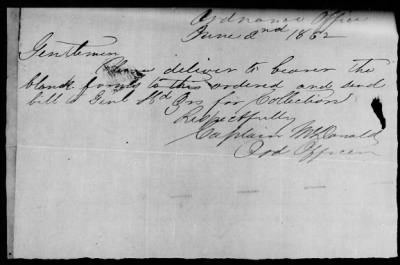 Ordnance Office
June 2nd 1862
Gentlemen
Please deliver to bearer the
blank forms to this ordered and send
bill to Genl Hd Qrs for Collection
Respectfully
Captain McDonald
Ord Officer